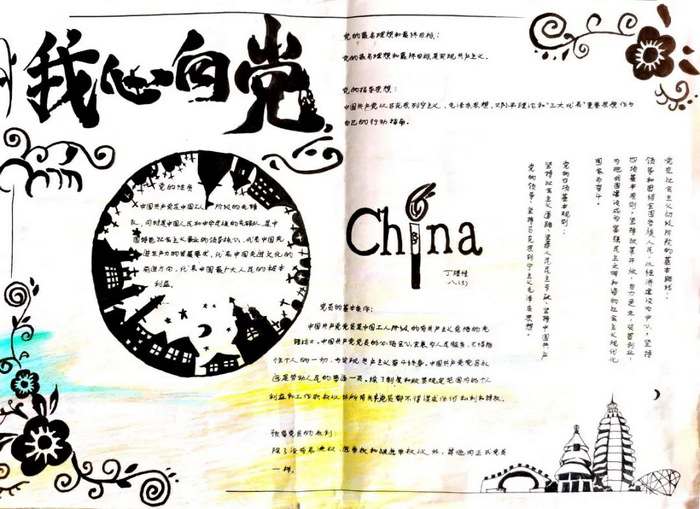 我心向党
党的最高理想和最终目标：
党的最高理想和最终目标是实现共产主义。
党的指导思想：
中国共产党以马克思列宁主义、毛泽东思想、邓小平理论和"三大代表"重要思想作为
自己的行动指南。
党的性质
中国共产党是中国工人阶级的先锋
队，同时是中国人民和中华民族的先锋队，是中
国特色社会主义事业的领导核心，代表中国先
进生产力的发展要求，代表中国先进文化的
前进方向，代表中国最广大人民的根本
利益。
China
丁
八(3)
党在社会主义初级阶段的基本路线：
领导和团结全国各族人民，以经济建设为中心，坚持
四项基本原则，坚持改革开放，自力更生，艰苦创业，
为把我国建设成为富强民主文明和谐的社会主义现代化
国家而奋斗。
党的四项基本原则：
坚持社会主义道路、坚持人民民主专政、坚持中国共产
党的领导、坚持马克思列宁主义毛泽东思想。
党员的基本条件：
中国共产党党员是中国工人阶级的有共产主义觉悟的先
锋战士。中国共产党党员必须全心全意为人民服务，不惜牺
牲个人的一切，为实现共产主义奋斗终身。中国共产党党员永
远是劳动人民的普通一员。除了制度和政策规定范围内的个人
利益和工作职权以外，所有共产党员都不得谋求任何私利和特权。
预备党员的权利：
除了没有表决权、选举权和被选举权以外，其他同正式党员
一样。